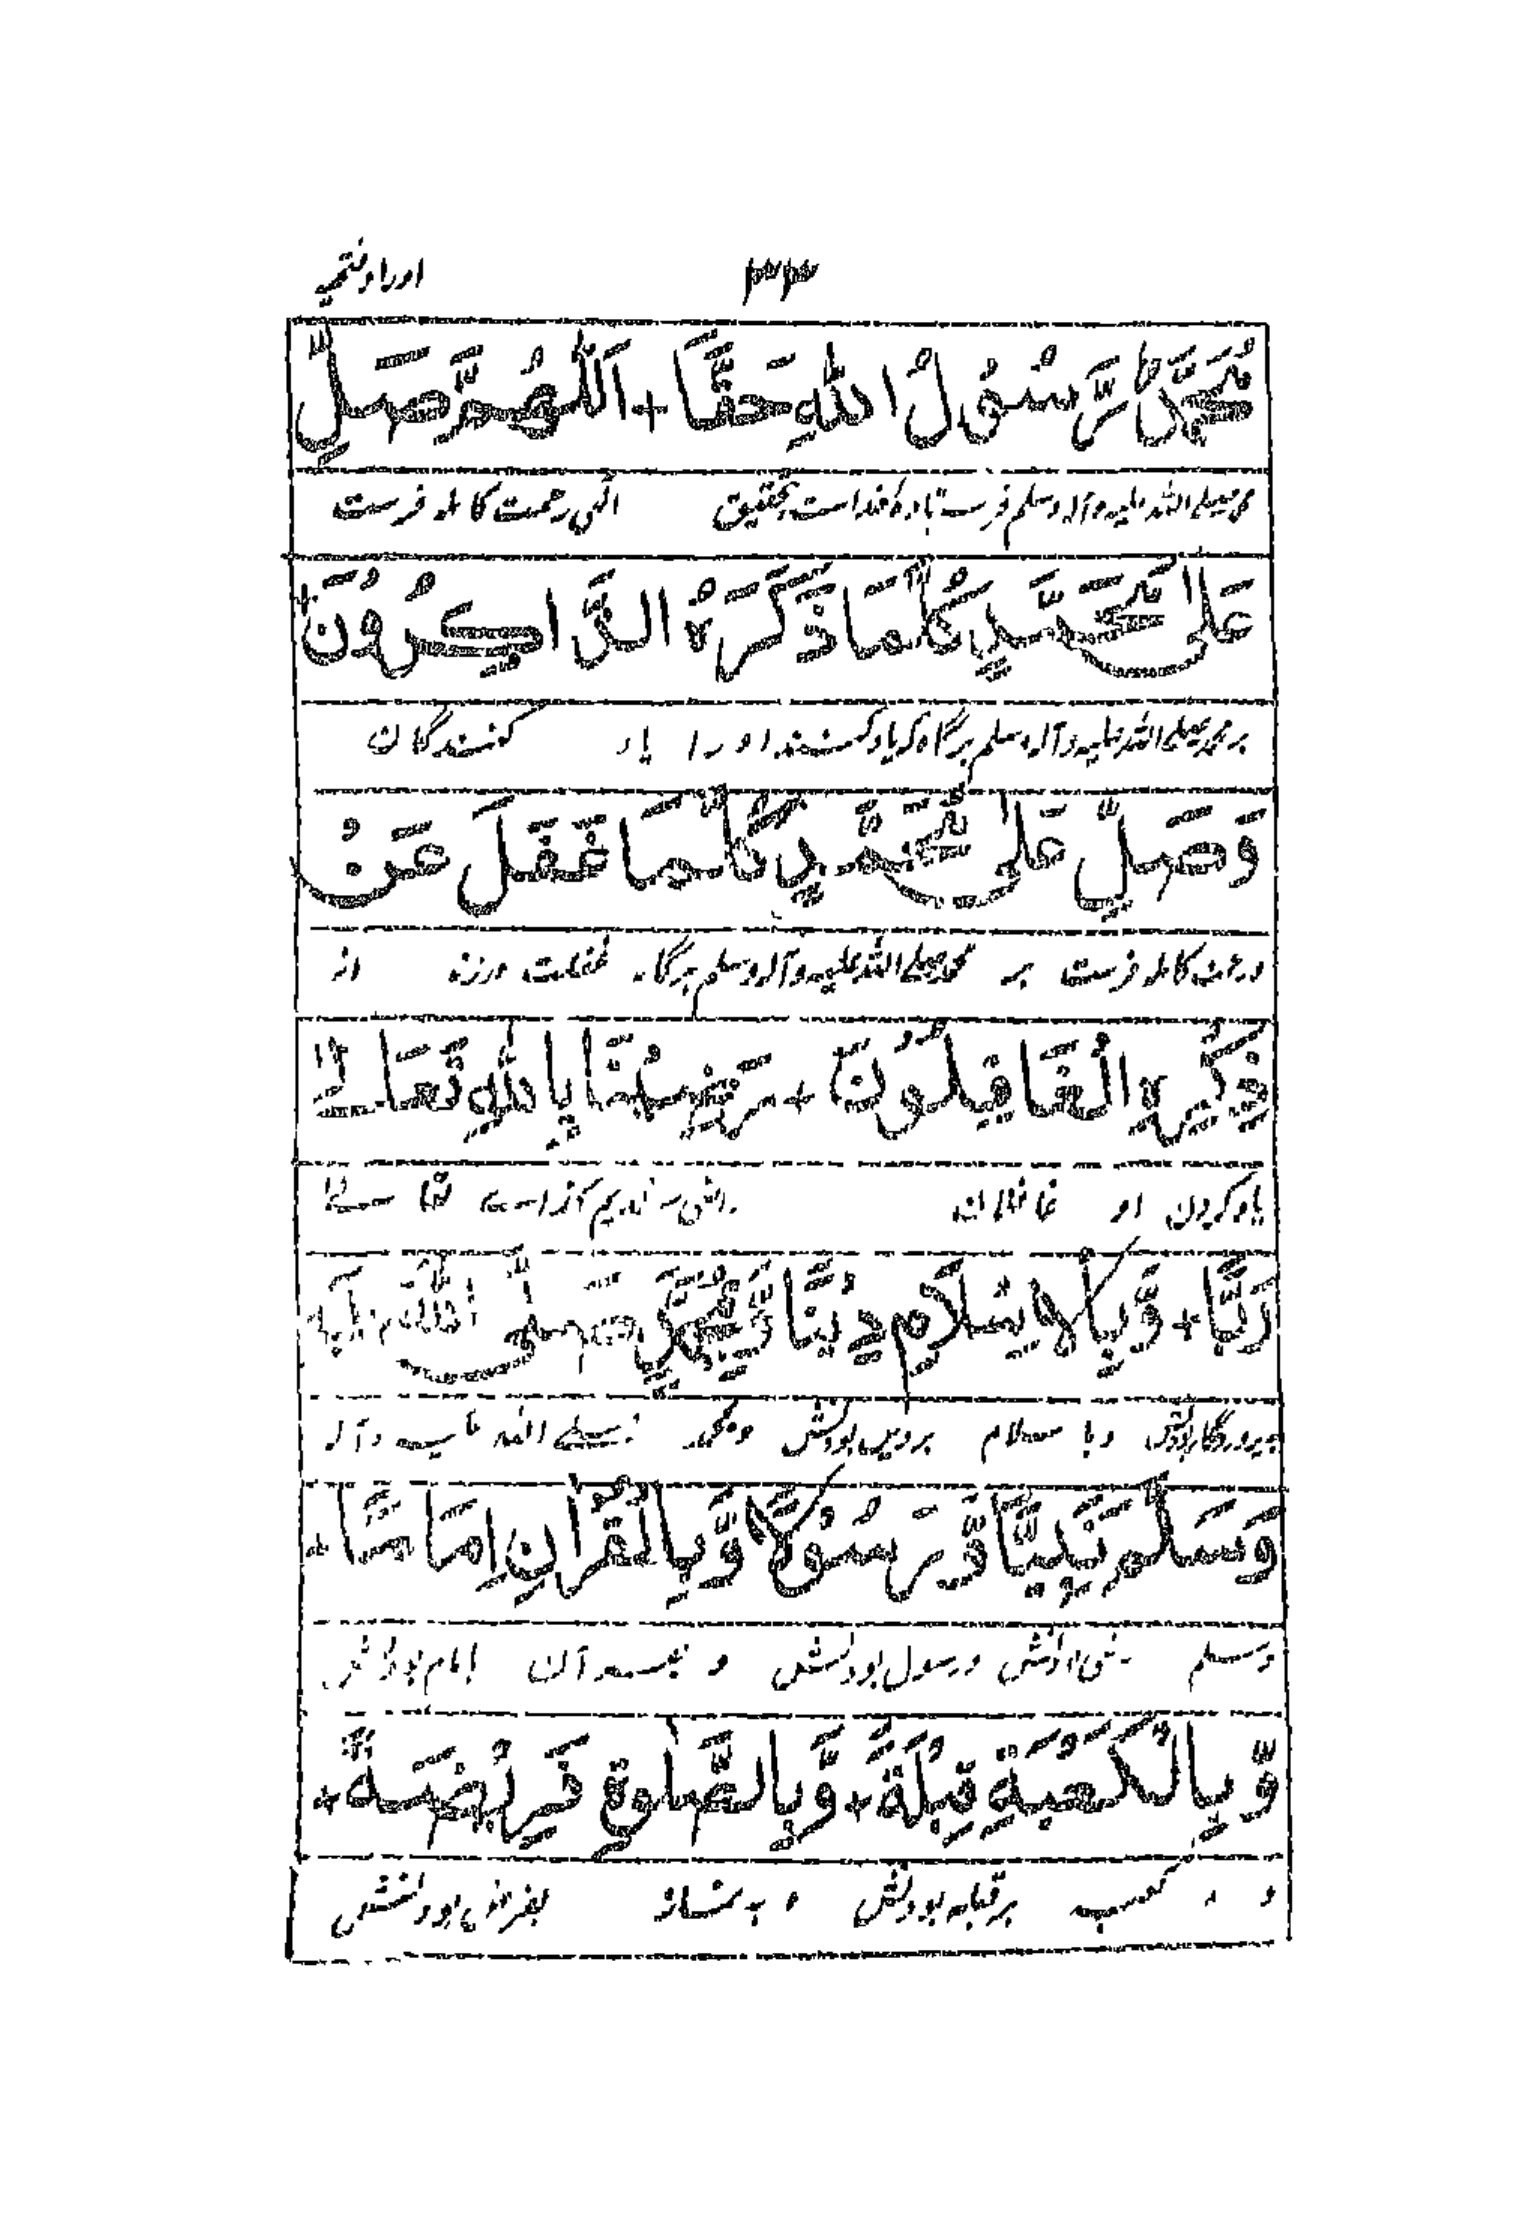 ۳۴ اوراد فتحیه
مُحَمَّدٌ رَّسُوْلُ اللهِ حَقًّا + اَللّٰهُمَّ صَلِّ
محمد صلی اللہ علیہ وآلہ وسلم فرستادہ خداست بتحقیق الٰہی رحمت کاملہ فرست
عَلٰى مُحَمَّدٍ كُلَّمَا ذَكَرَهُ الذَّاكِرُوْنَ +
بر محمد صلی اللہ علیہ وآلہ وسلم ہرگاہ کہ یاد کنند اورا یاد کنندگان
وَصَلِّ عَلٰى مُحَمَّدٍ كُلَّمَا غَفَلَ عَنْ
ورحمت کاملہ فرست بر محمد صلی اللہ علیہ وآلہ وسلم ہرگاہ غفلت ورزند از
ذِكْرِهِ الْغَافِلُوْنَ + رَضِيْنَا بِاللهِ تَعَالٰى
یاد کردن او غافلان راضی شدیم تعالے
رَبًّا + وَّبِالْاِسْلَامِ دِيْنًا وَّبِمُحَمَّدٍ صَلَّى اللهُ عَلَيْهِ وَاٰلِهٖ
بپروردگار بودنش وبا سلام بردین بودنش وبمحمد صلے اللہ علیہ وآلہ
وَسَلَّمَ نَبِيًّا وَّرَسُوْلًا وَّبِالْقُرْاٰنِ اِمَامًا +
وسلم ورسول بودنش و بقرآن بامام بودنش
وَّبِالْكَعْبَةِ قِبْلَةً + وَّبِالصَّلٰوةِ فَرِيْضَةً +
و بہ کعبہ بر قبلہ بودنش و بہ نماز بفرض بودنش